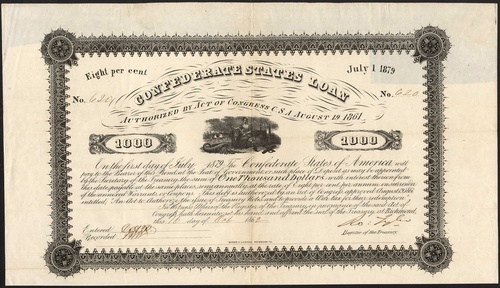 Eight per cent
July 1 1879
CONFEDERATE STATES LOAN
No. 620
No. 620
AUTHORIZED BY ACT OF CONGRESS C.S.A. AUGUST 19, 1861.
1000
1000
On the first day of July 1879 The Confederate States of America will
pay to the Bearer of this Bond, at the Seat of Government, or such place of Deposit as may be appointed
by the Secretary of the Treasury, the sum of One Thousand Dollars, with interest thereon from
this date, payable at the same places, semi-annually, at the rate of Eight per cent per annum, on surrender
of the annexed Warrants, or Coupons. This debt is authorized by an Act of Congress, approved August 19, 1861
entitled, An Act to Authorize the issue of Treasury Notes and to provide a War tax for their redemption.
In Witness Whereof the Register of the Treasury, in pursuance of the said Act of
Congress, hath hereunto set his hand, and affixed the seal of the Treasury, at Richmond,
this day of 1862
Register of the Treasury
Entered
Recorded